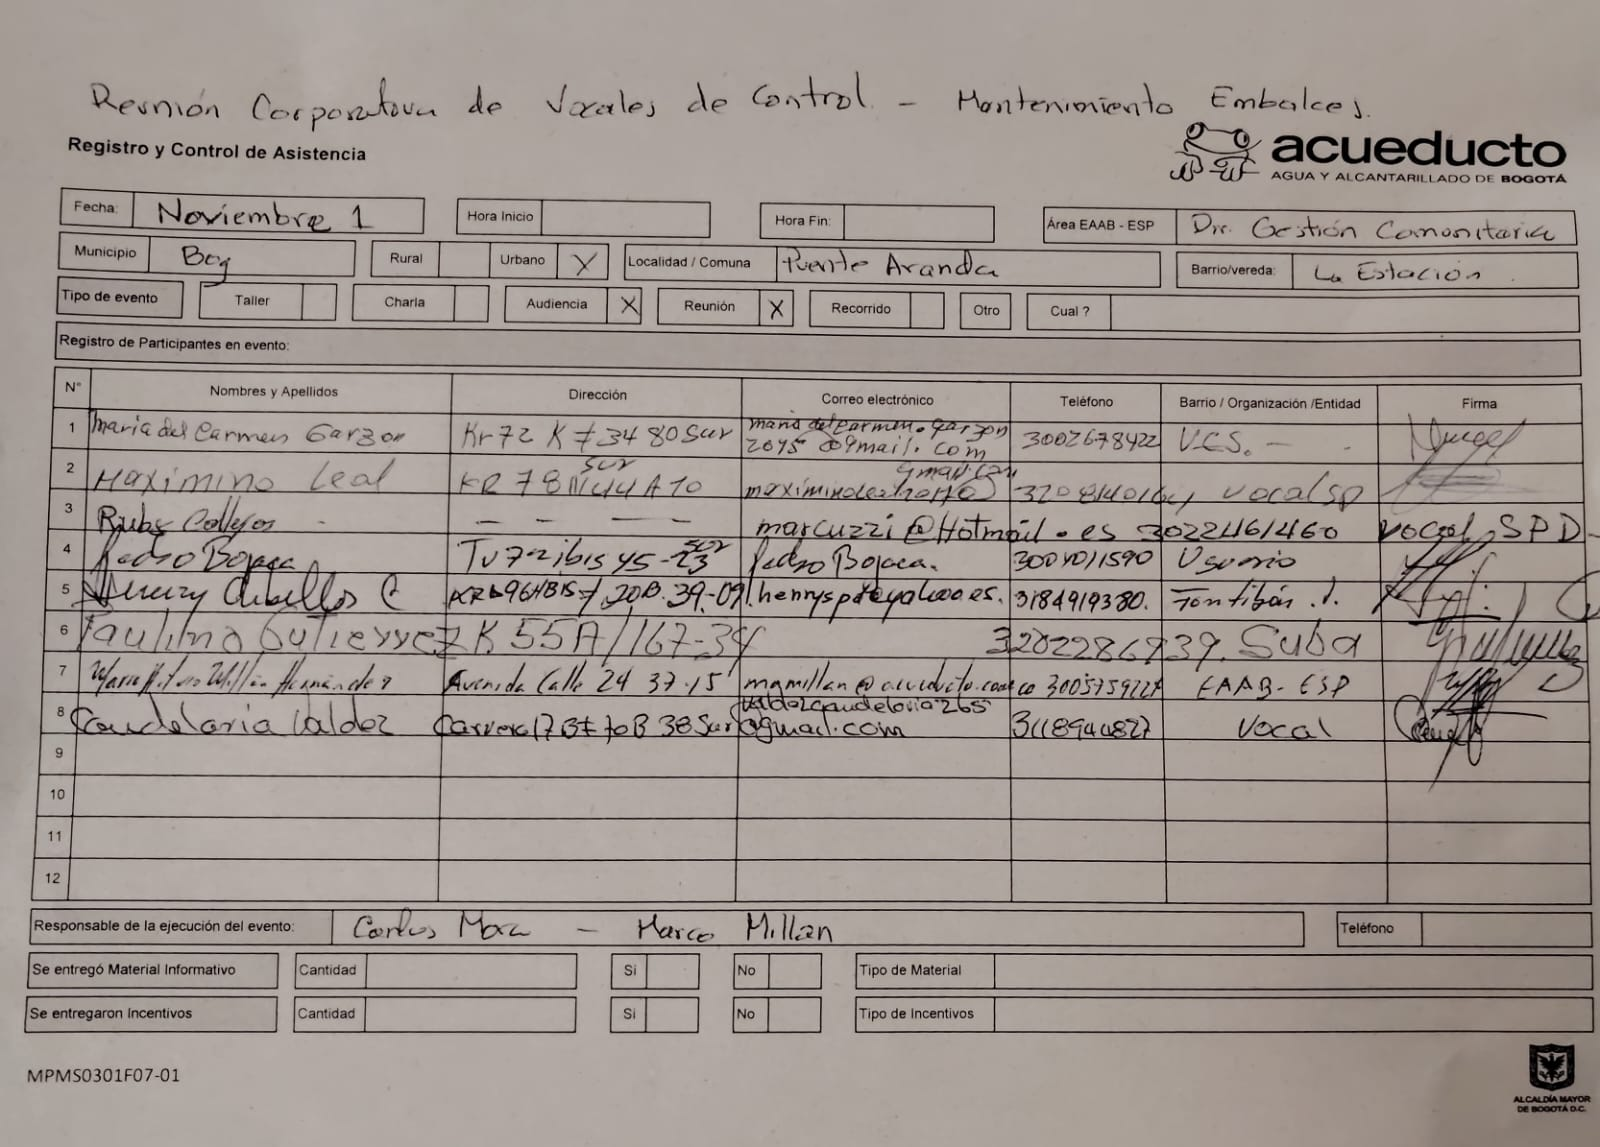 Reunión Corporativa de Vocales de Control - Mantenimiento Embalces.
Registro y Control de Asistencia
acueducto
AGUA Y ALCANTARILLADO DE BOGOTÁ
Fecha: Noviembre 1 Hora Inicio Hora Fin: Área EAAB - ESP Dir. Gestión Comunitaria
Municipio Bog Rural Urbano X Localidad / Comuna Puente Aranda Barrio/vereda: La Estación
Tipo de evento Taller Charla Audiencia X Reunión X Recorrido Otro Cual ?
Registro de Participantes en evento:
N° Nombres y Apellidos Dirección Correo electrónico Teléfono Barrio / Organización /Entidad Firma
1 Maria del Carmen Garzon Kr 72 K # 34 80 Sur maria del carmen.garzon 2015@gmail.com 3002678422 V.C.S.
2 Maximino Leal KR 78 sur gmail.com vocal sp
3 Ruby Callejas - - - - marcuzzi@Hotmail.es 3022461460 vocal SPD
4 Pedro Bojaca 45-23 sur Pedro Bojaca. 3004011590 Usuario
5 Henry Cubillos C 20B.39-09 3184919380. Fontibón
6 Paulino Gutierrez K 55A/167-34 3202286939. Suba
7 Millán Hernández Avenida Calle 24 37-15 mgmillan@acueducto.com.co EAAB-ESP
8 Candelaria Valdez Carrera 17B # 70B 38 Sur valdezcandelaria265@gmail.com 3118944827 Vocal
9
10
11
12
Responsable de la ejecución del evento: Carlos Mora - Marco Millan Teléfono
Se entregó Material Informativo Cantidad Si No Tipo de Material
Se entregaron Incentivos Cantidad Si No Tipo de Incentivos
MPMS0301F07-01
ALCALDÍA MAYOR
DE BOGOTÁ D.C.